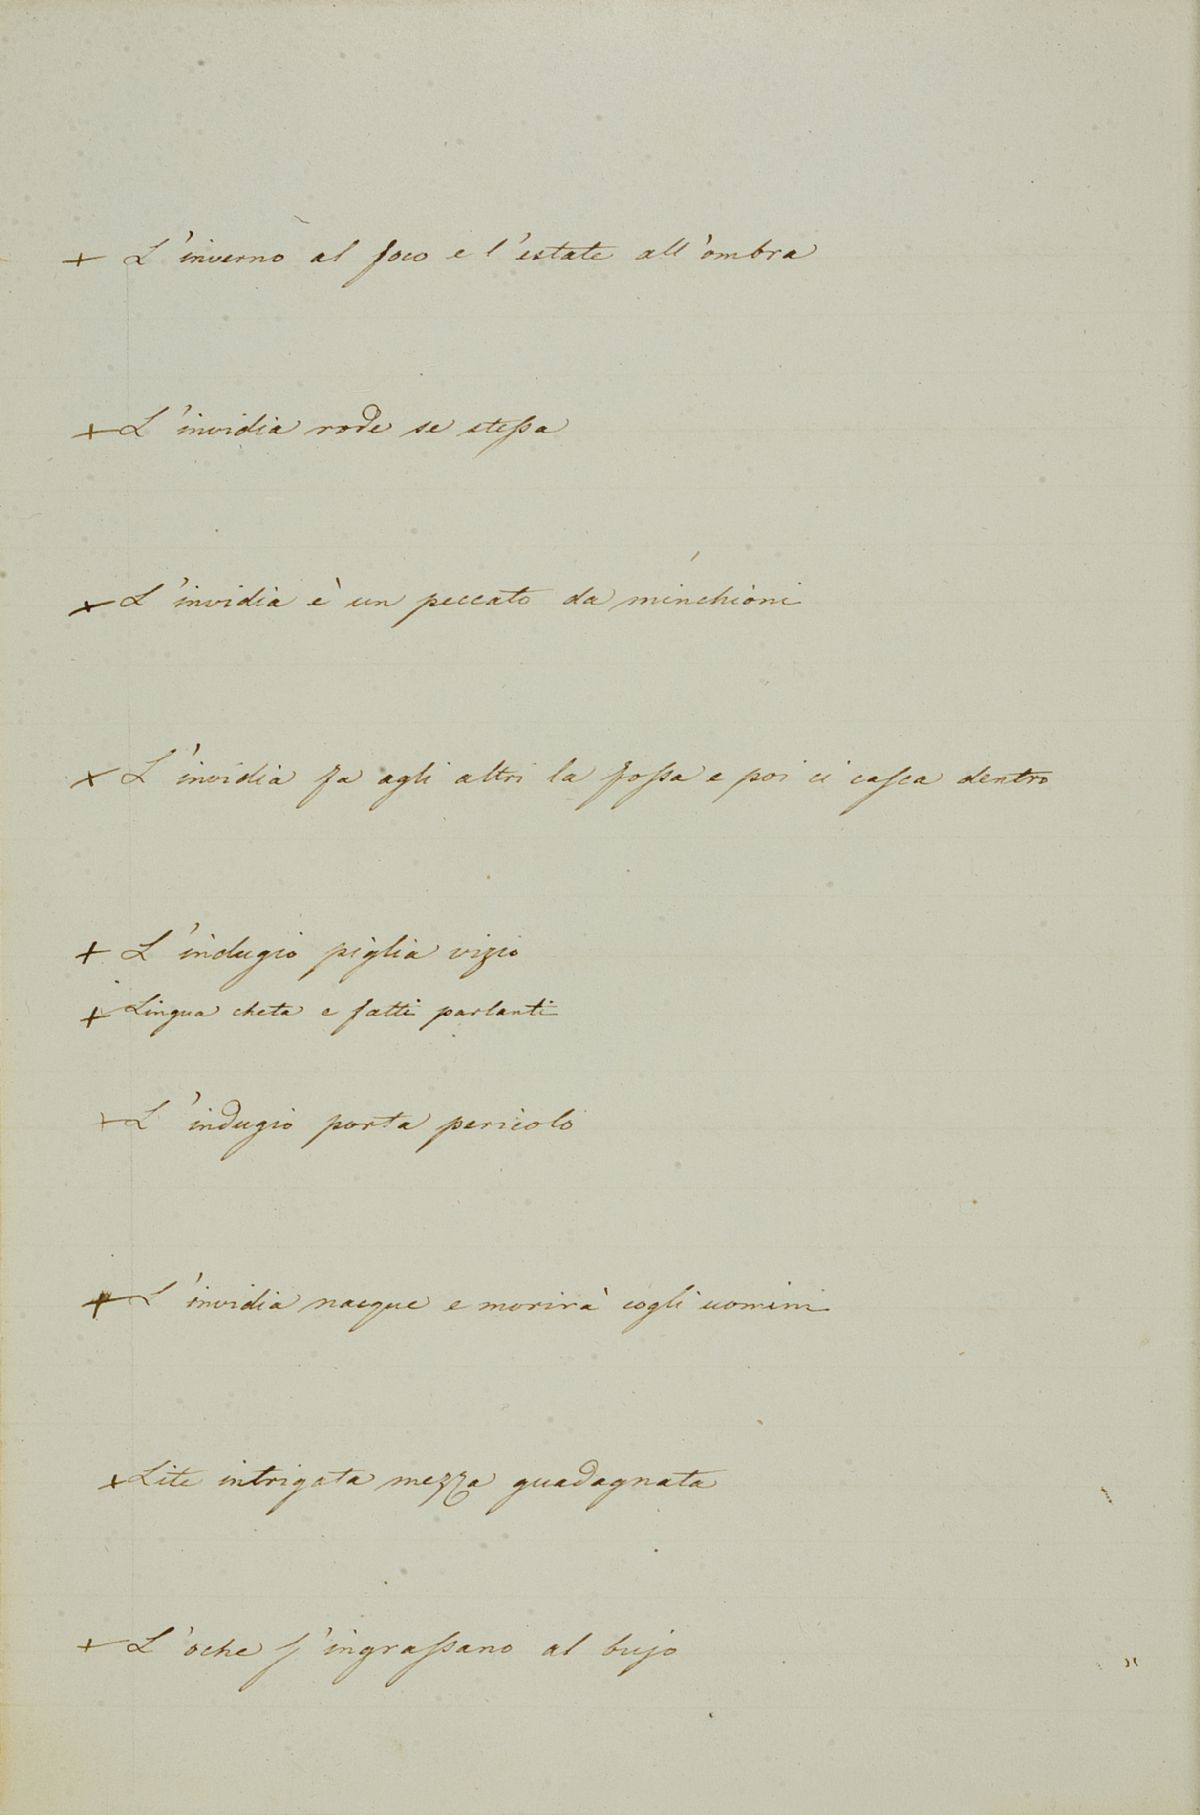 + L'inverno al foco e l'estate all'ombra
+ L'invidia rode se stessa
+ L'invidia è un peccato da minchioni
+ L'invidia fa agli altri la fossa e poi ci casca dentro
+ L'indugio piglia vizio
+ Lingua cheta e fatti parlanti
+ L'indugio porta pericolo
+ L'invidia nacque e morirà cogli uomini
+ Lite intrigata mezza guadagnata
+ L'oche s'ingrassano al bujo